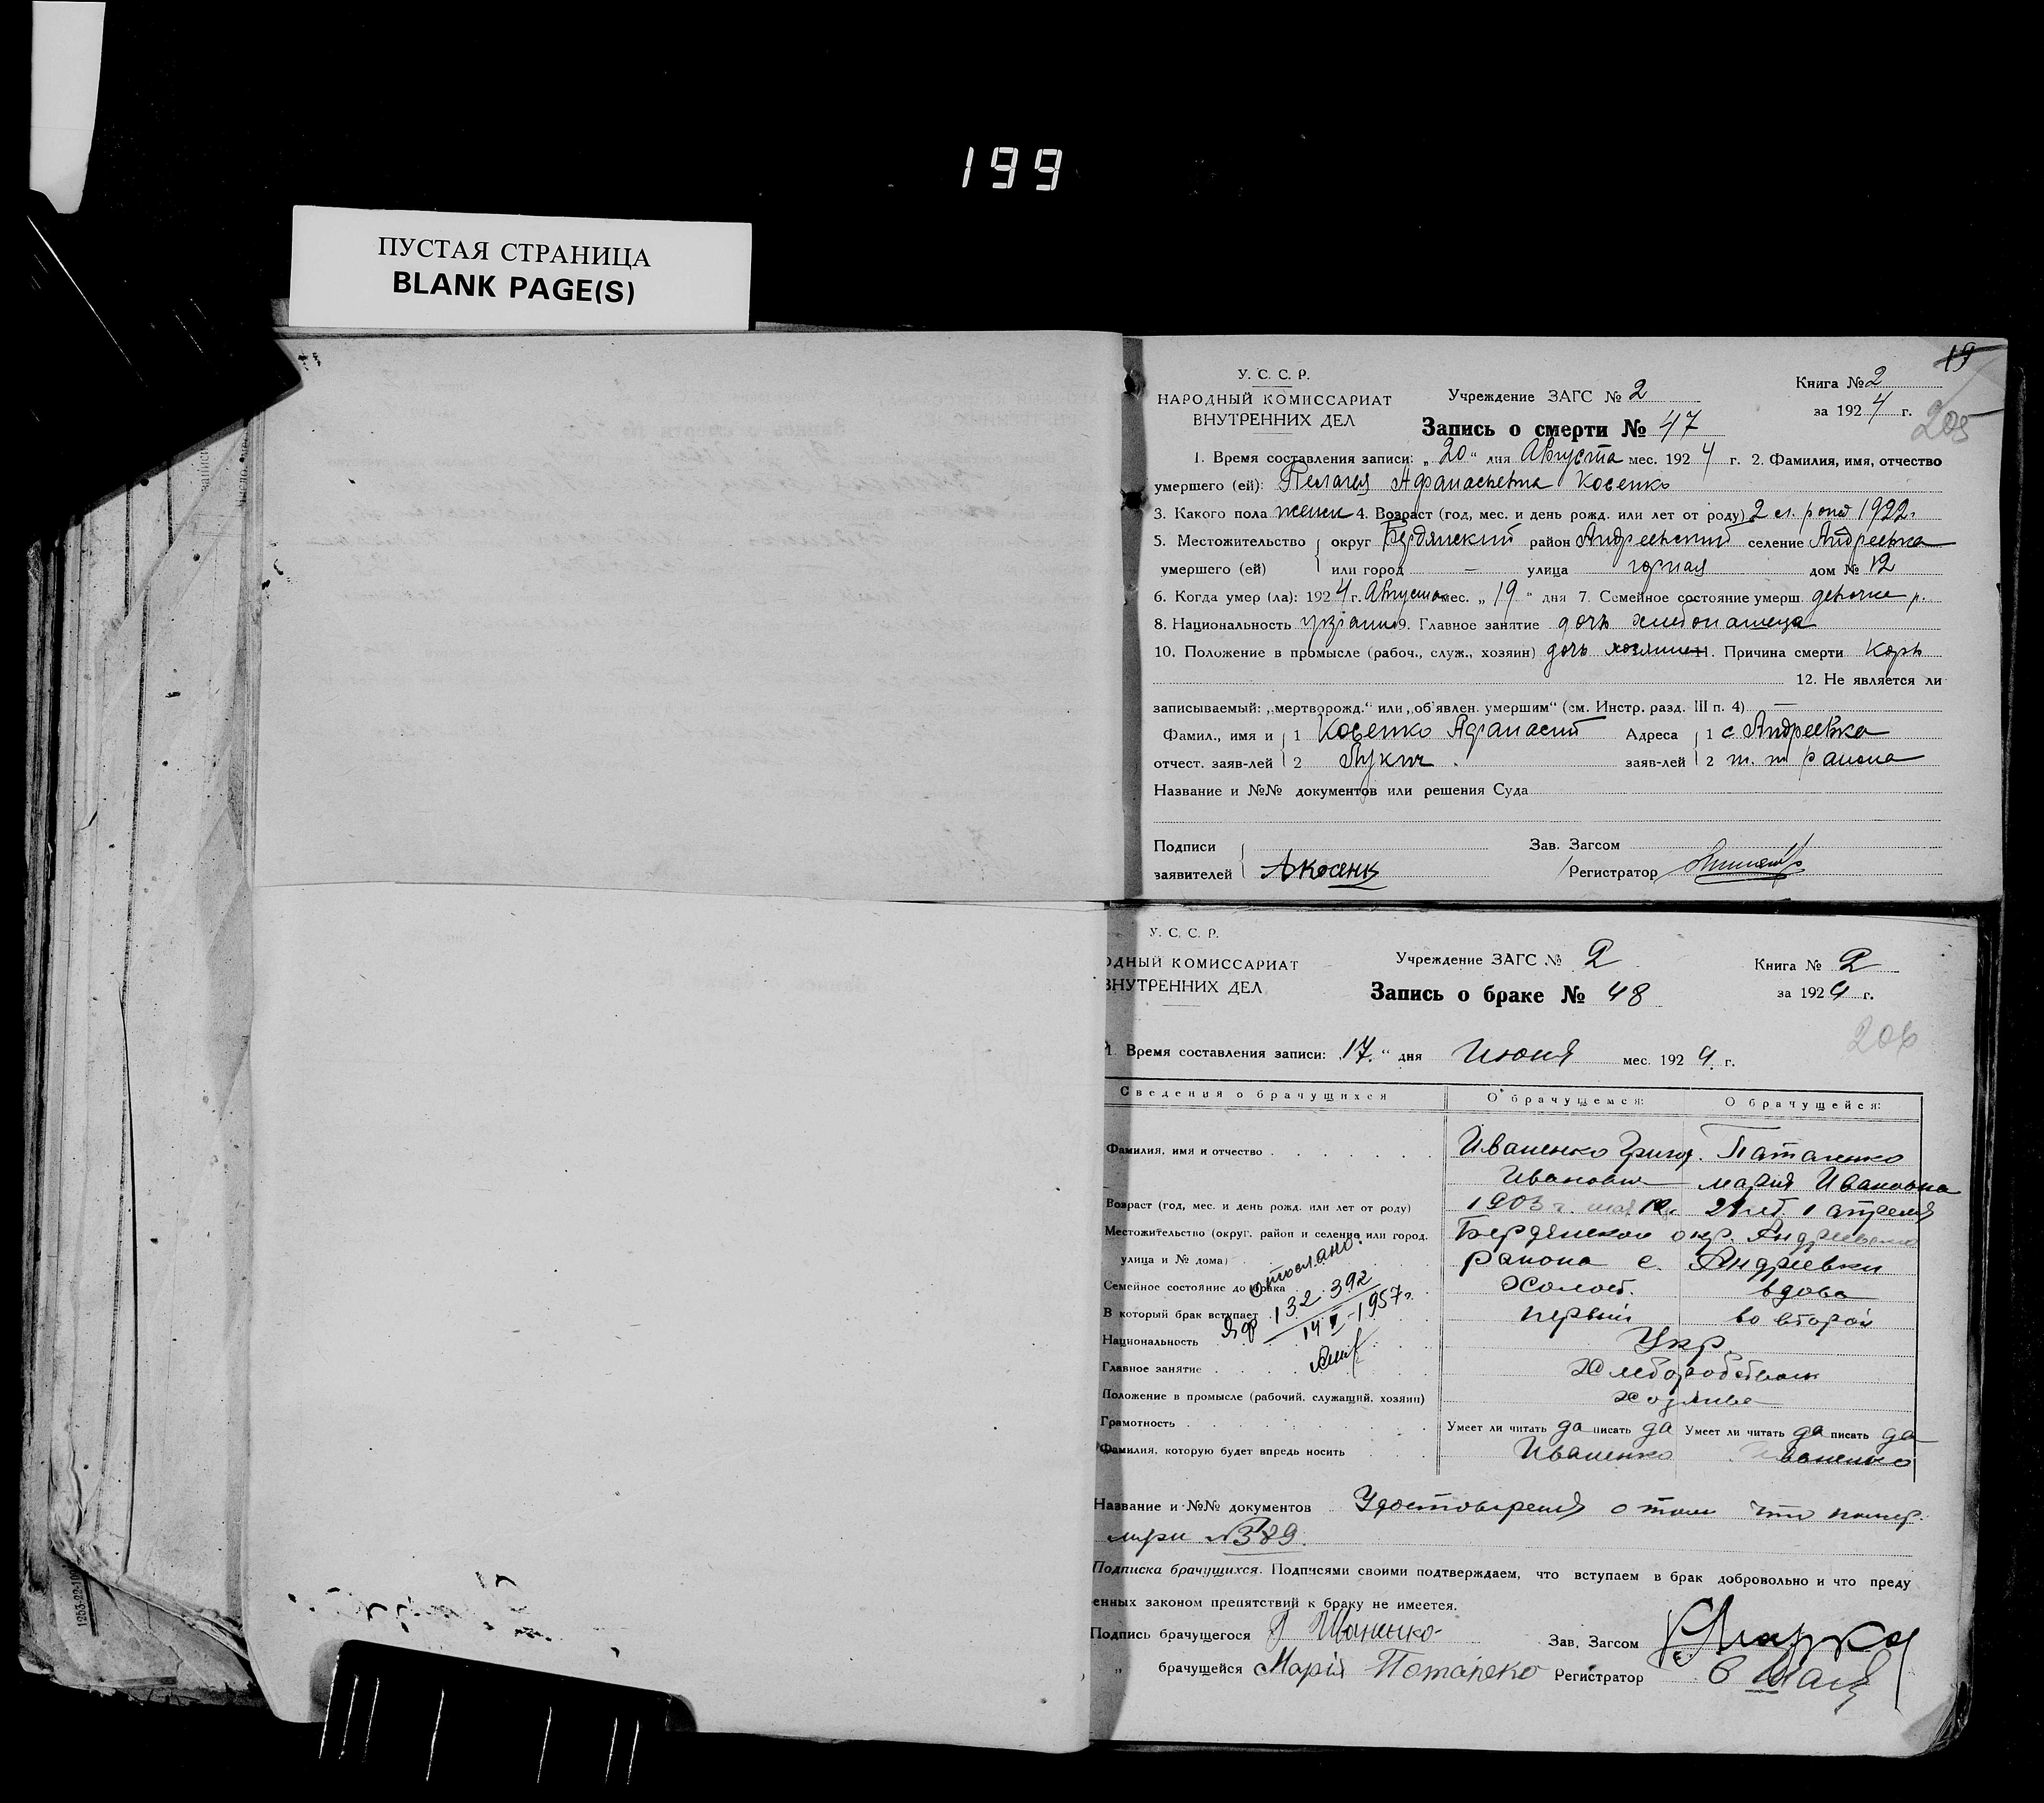 199
ПУСТАЯ СТРАНИЦА
BLANK PAGE(S)
19
205
У. С. С. Р.
НАРОДНЫЙ КОМИССАРИАТ
ВНУТРЕННИХ ДЕЛ
Учреждение ЗАГС № 2
Книга № 2
за 1924 г.
Запись о смерти № 47
1. Время составления записи: „20" дня Августа мес. 1924 г. 2. Фамилия, имя, отчество
умершего (ей): Пелагея Афанасьевна Косенко
3. Какого пола женск 4. Возраст (год, мес. и день рожд. или лет от роду) 2 1922 г
5. Местожительство округ Бердянский район Андреевский селение Андреевка
умершего (ей) или город — улица горная дом № 12
6. Когда умер (ла): 1924 г. Августа мес. „19" дня 7. Семейное состояние умерш.
8. Национальность 9. Главное занятие дочь хлебопашеца
10. Положение в промысле (рабоч., служ., хозяин) дочь 11. Причина смерти Корь
12. Не является ли
записываемый: „мертворожд." или „об'явлен. умершим" (см. Инстр. разд. III п. 4) —
Фамил., имя и 1 Косенко Афанасий Адреса 1 с Андреевка
отчест. заяв-лей 2 Лукич. заяв-лей 2 т. т района
Название и №№ документов или решения Суда
Подписи Зав. Загсом
заявителей А Косенк Регистратор
У. С. С. Р.
ОДНЫЙ КОМИССАРИАТ
ВНУТРЕННИХ ДЕЛ
Учреждение ЗАГС № 2
Книга № 2
за 1924 г.
Запись о браке № 48
206
1. Время составления записи: „17." дня Июня мес. 1924. г.
Сведения о брачущихся О брачущемся: О брачущейся:
Фамилия, имя и отчество Иваненко Григор. Паталенко
Иванович Мария Ивановна
Возраст (год, мес. и день рожд. или лет от роду) 1903 г. 21 лет 1 апреля
Местожительство (округ. район и селение или город, Бердянской окр. Андреевско
улица и № дома) района с. Андреевки
отослано.
Семейное состояние до брака Холост. вдова
132.392
В который брак вступает первый во второй
14 V-1957 г.
Национальность Укр.
Главное занятие Хлеборобством
Положение в промысле (рабочий, служащий, хозяин)
Грамотность Умеет ли читать да писать да Умеет ли читать да писать да
Фамилия, которую будет впредь носить Иваненко Иваненко
Название и №№ документов Удостоверения о том что
№ 389.
Подписка брачущихся. Подписями своими подтверждаем, что вступаем в брак добровольно и что преду
енных законом препятствий к браку не имеется.
Подпись брачущегося Г Иваненко Зав. Загсом
„ брачущейся Марія Потапеко Регистратор
1253-22-100